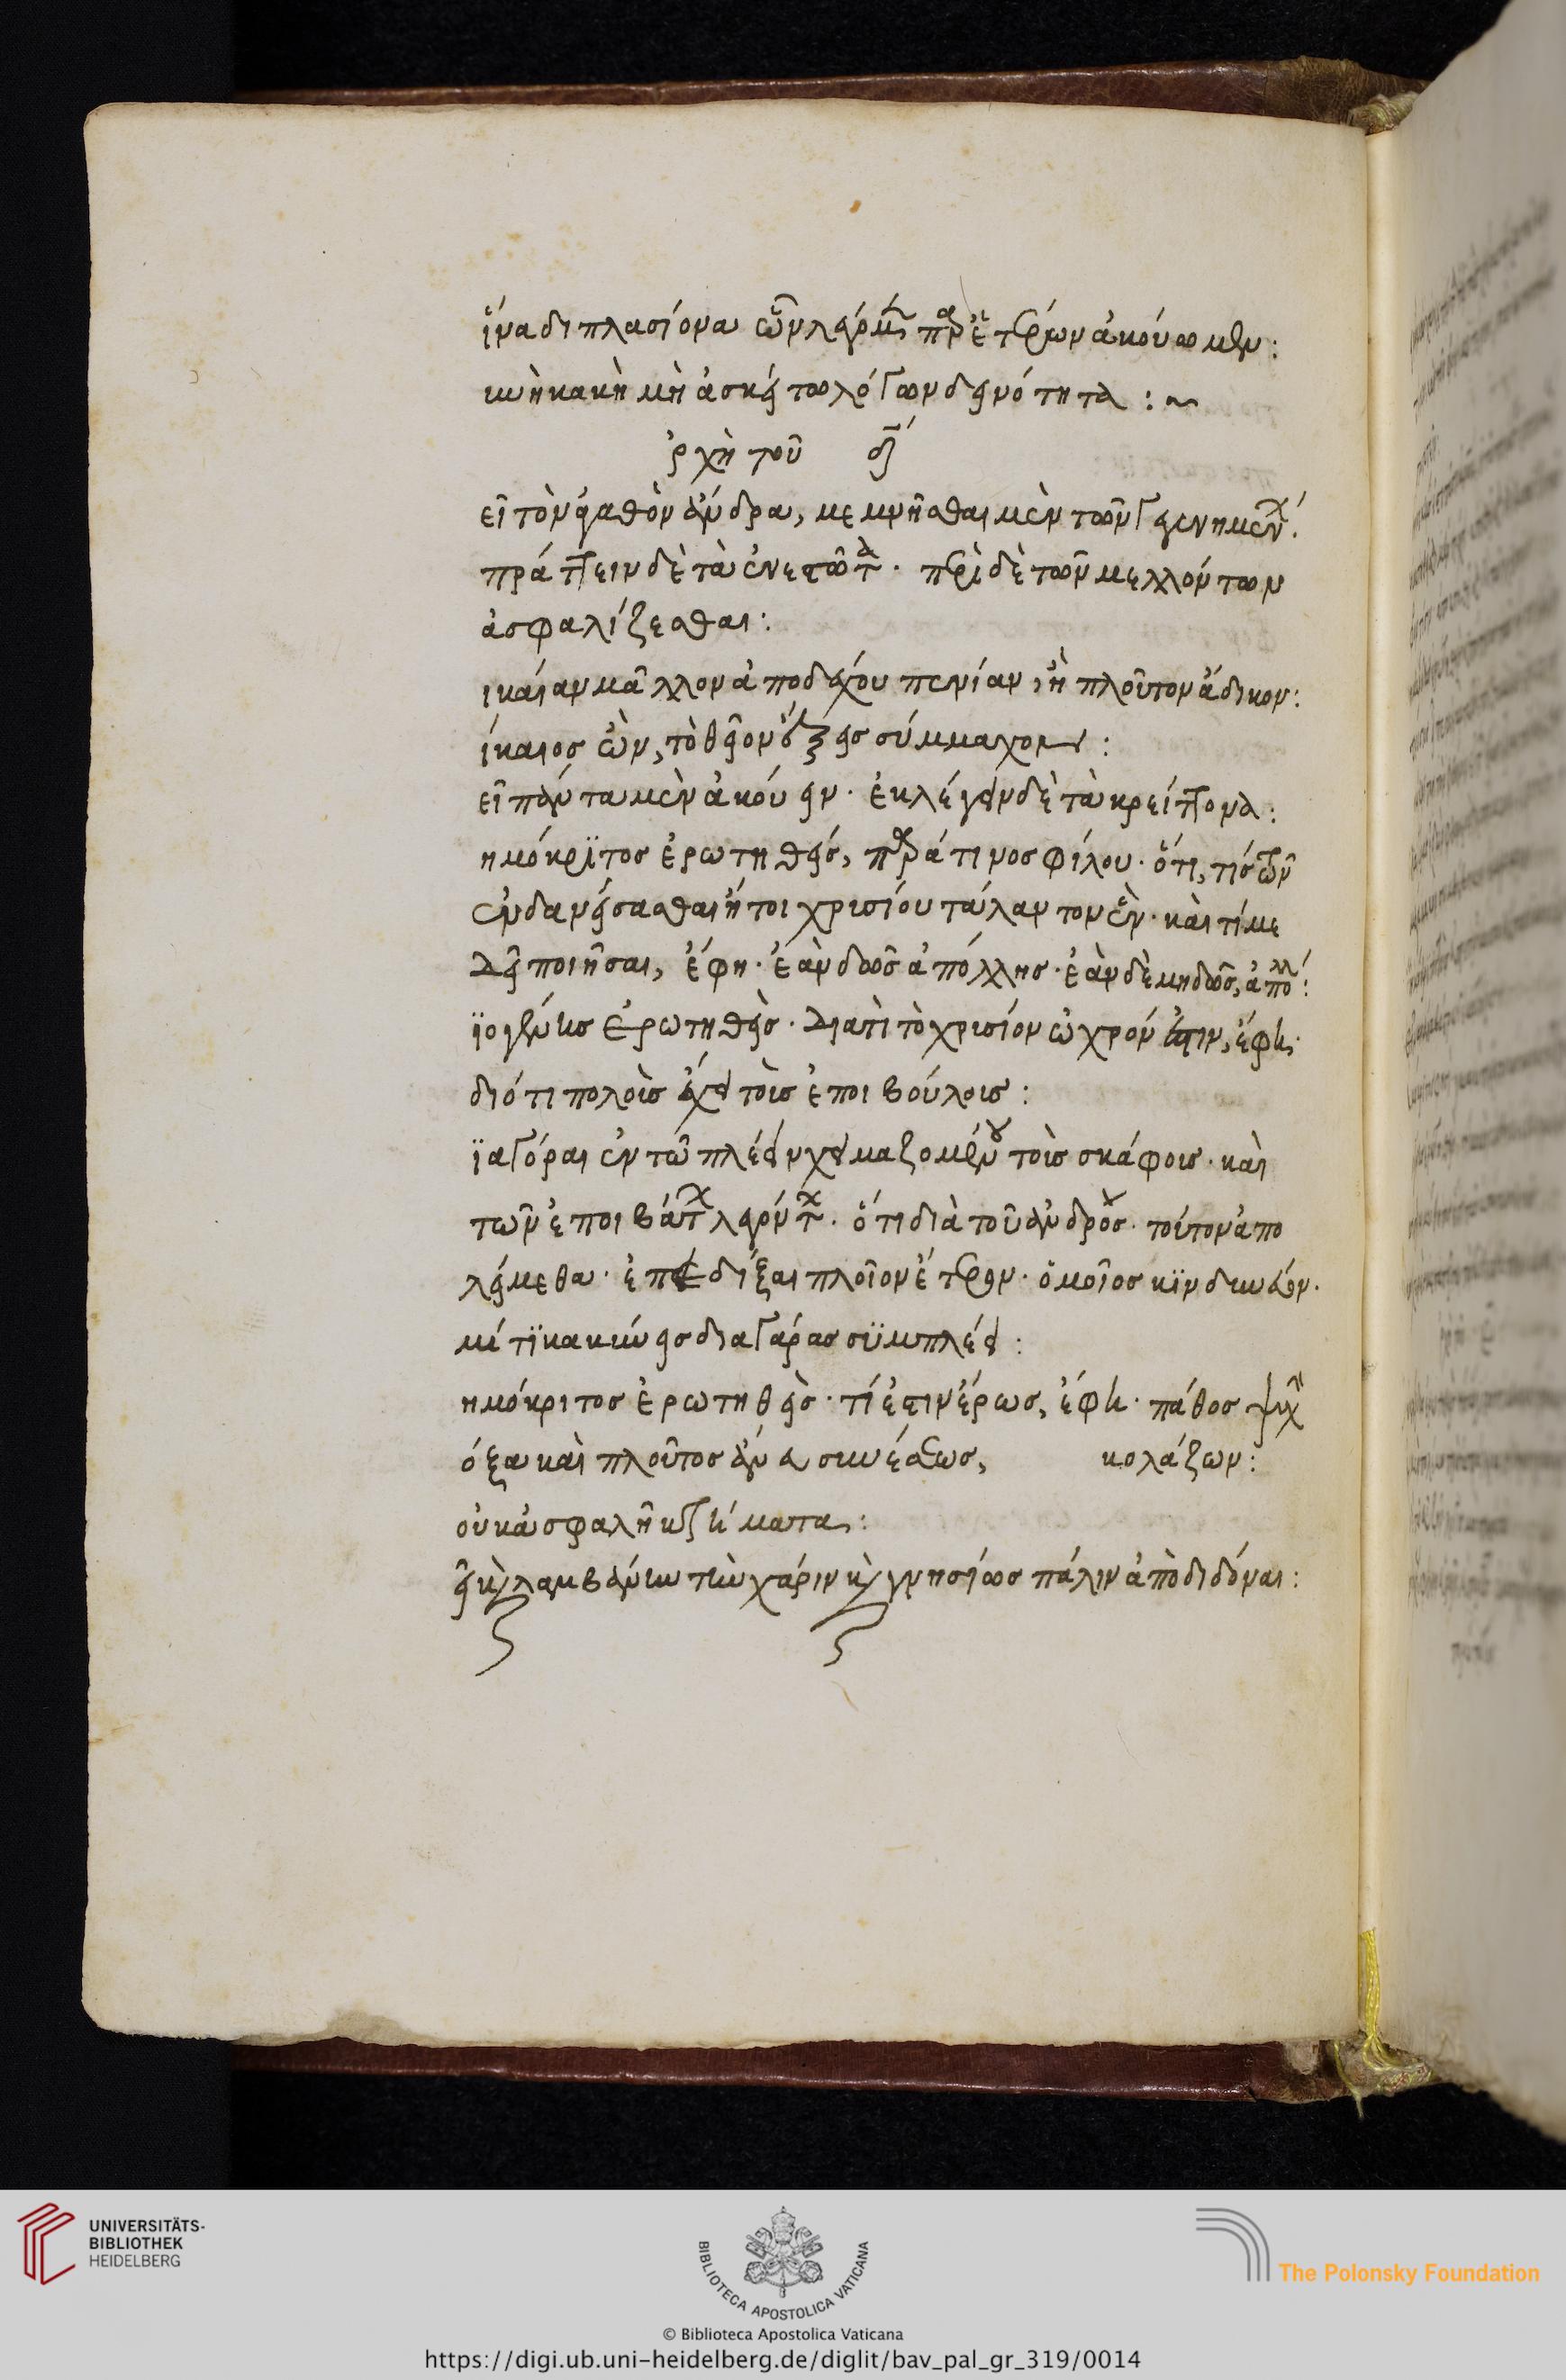 ἵνα διπλασίονα ὧν λέγομεν παρ ἑτέρων ἀκούωμεν:
ωὴ κακὴ μὴ ἀσκεῖτω λόγων δεινότητα:~
ρχὴ τοῦ δ
εῖ τὸν ἀγαθὸν ἄνδρα, μεμνῆσθαι μὲν τῶν γεγενημένων.
πράττειν δὲ τὰ ἐνεστῶτα. περὶ δὲ τῶν μελλόντων
ἀσφαλίζεσθαι:
ικάιαν μᾶλλον ἀποδέχου πενίαν, ἢ πλοῦτον ἄδικον:
ίκαιος ὢν, τὸ θεῖον ἕξεις σύμμαχον:
εῖ πάντα μὲν ἀκούειν. ἐκλέγειν δὲ τὰ κρείττονα:
ημόκρϊτος ἐρωτηθείς, παρά τινος φίλου. ὅτι, τίς τῶν
δανείσασθαι ἤτοι χρισίου τάλαντον ἓν. κὰι τί με
δεῖ ποιῆσαι, ἔφη. ἐὰν δῶς ἀπόλλης. ἐὰν δὲ μηδῶς, ἀπολλ:
ϊογένης ἐρωτηθεὶς. διατὶ τὸ χρισίον ὠχρόν ἐστιν, ἔφη.
διότι πολοὶς ἔχει τοὶς ἐποιβούλοις:
ϊαγόραι ἐν τῶ πλέειν χειμαζομένου τοὶς σκάφοις. κὰι
τῶν ἐποιβάτων λεγόντων. ὅτι διὰ τοῦ ἀνδρὸς τούτον ἀπο
λείμεθα. ἐπεδίξαι πλοῖον ἕτερον. ὁμοῖος κϊνδινεύον.
μί τϊ κακίνεις διαγάρας σϋμπλέει:
ημόκριτος ἐρωτηθεὶς. τί ἐστιν ἔρως, ἔφη. πάθος ψυχῆς
όξα κὰι πλοῦτος ἄνευ συνέσεως, κολάζων:
οὐκ ἀσφαλῆ κτήματα:
εῖ καὶ λαμβάνειν τὴν χάριν καὶ γνησίως πάλιν ἀπὸδιδόναι:
UNIVERSITÄTS-
BIBLIOTHEK
HEIDELBERG
BIBLIOTECA APOSTOLICA VATICANA
The Polonsky Foundation
© Biblioteca Apostolica Vaticana
https://digi.ub.uni-heidelberg.de/diglit/bav_pal_gr_319/0014